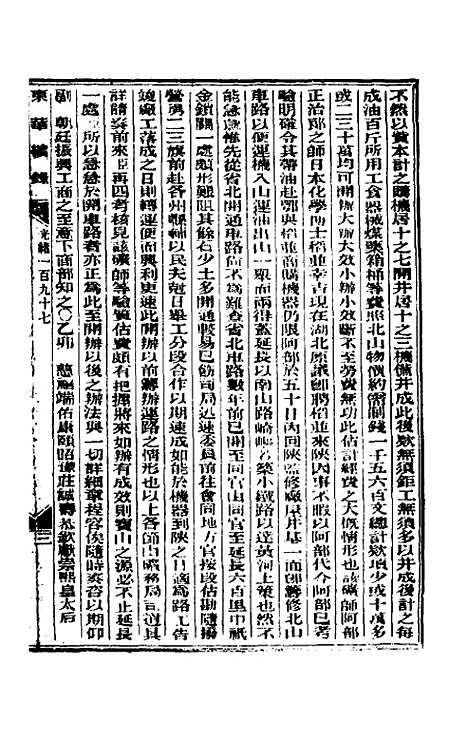 不然以資本計之購機居十之七開井居十之三機備井成此後欵無須鉅工無須多以井成後計之每
成油百斤所用工食器械煤藥箱桶等費照北山物價約需制錢一千五六百文總計欵項少或十萬多
或二三十萬均可開辦大辦大效小辦小效斷不至勞費無功此估計經費之大槪情形也該礦師阿部
正治郞之師日本化學博士稻並幸吉現在湖北原議卽聘稻並來陝因事不暇以阿部代今阿部已考
驗明確令其帶油赴鄂與稻並商購機器仍限阿部於五十日內回陝監修廠屋井基一面卽籌修北山
車路以便運機入山運油出山一舉而兩得蓋延長以南山路崎嶇若築小鐵路以達黃河上策也然不
能急就惟先從省北開通車路尚不為難查省北車路數年前已開至同官由同官至延長六百里中祇
金鎖關一處頗形難阻其餘石少土多開通較易已飭司局迅速委員前往會同地方官按段估勘隨撥
營勇二三旗前赴各州縣輔以民夫尅日舉工分段合作以期速成如能於機器到陝之日適為路工告
竣廠工落成之日則轉運便而興利更速此開辦以前籌辦運路之情形也以上各節由礦務局司道具
詳請奏前來臣再四考核見該礦師等驗覽估費頗有把握將來如辦有成效則寶山之源必不止延長
一處臣所以急急於開車路者亦正為此至開辦以後之辦法與一切詳細章程容俟隨時奏咨以期仰
副　朝廷振興工商之至意下商部知之○乙卯　慈禧端佑康頤昭豫莊誠壽恭欽獻崇熙皇太后
東華續錄　光緒一百九十七